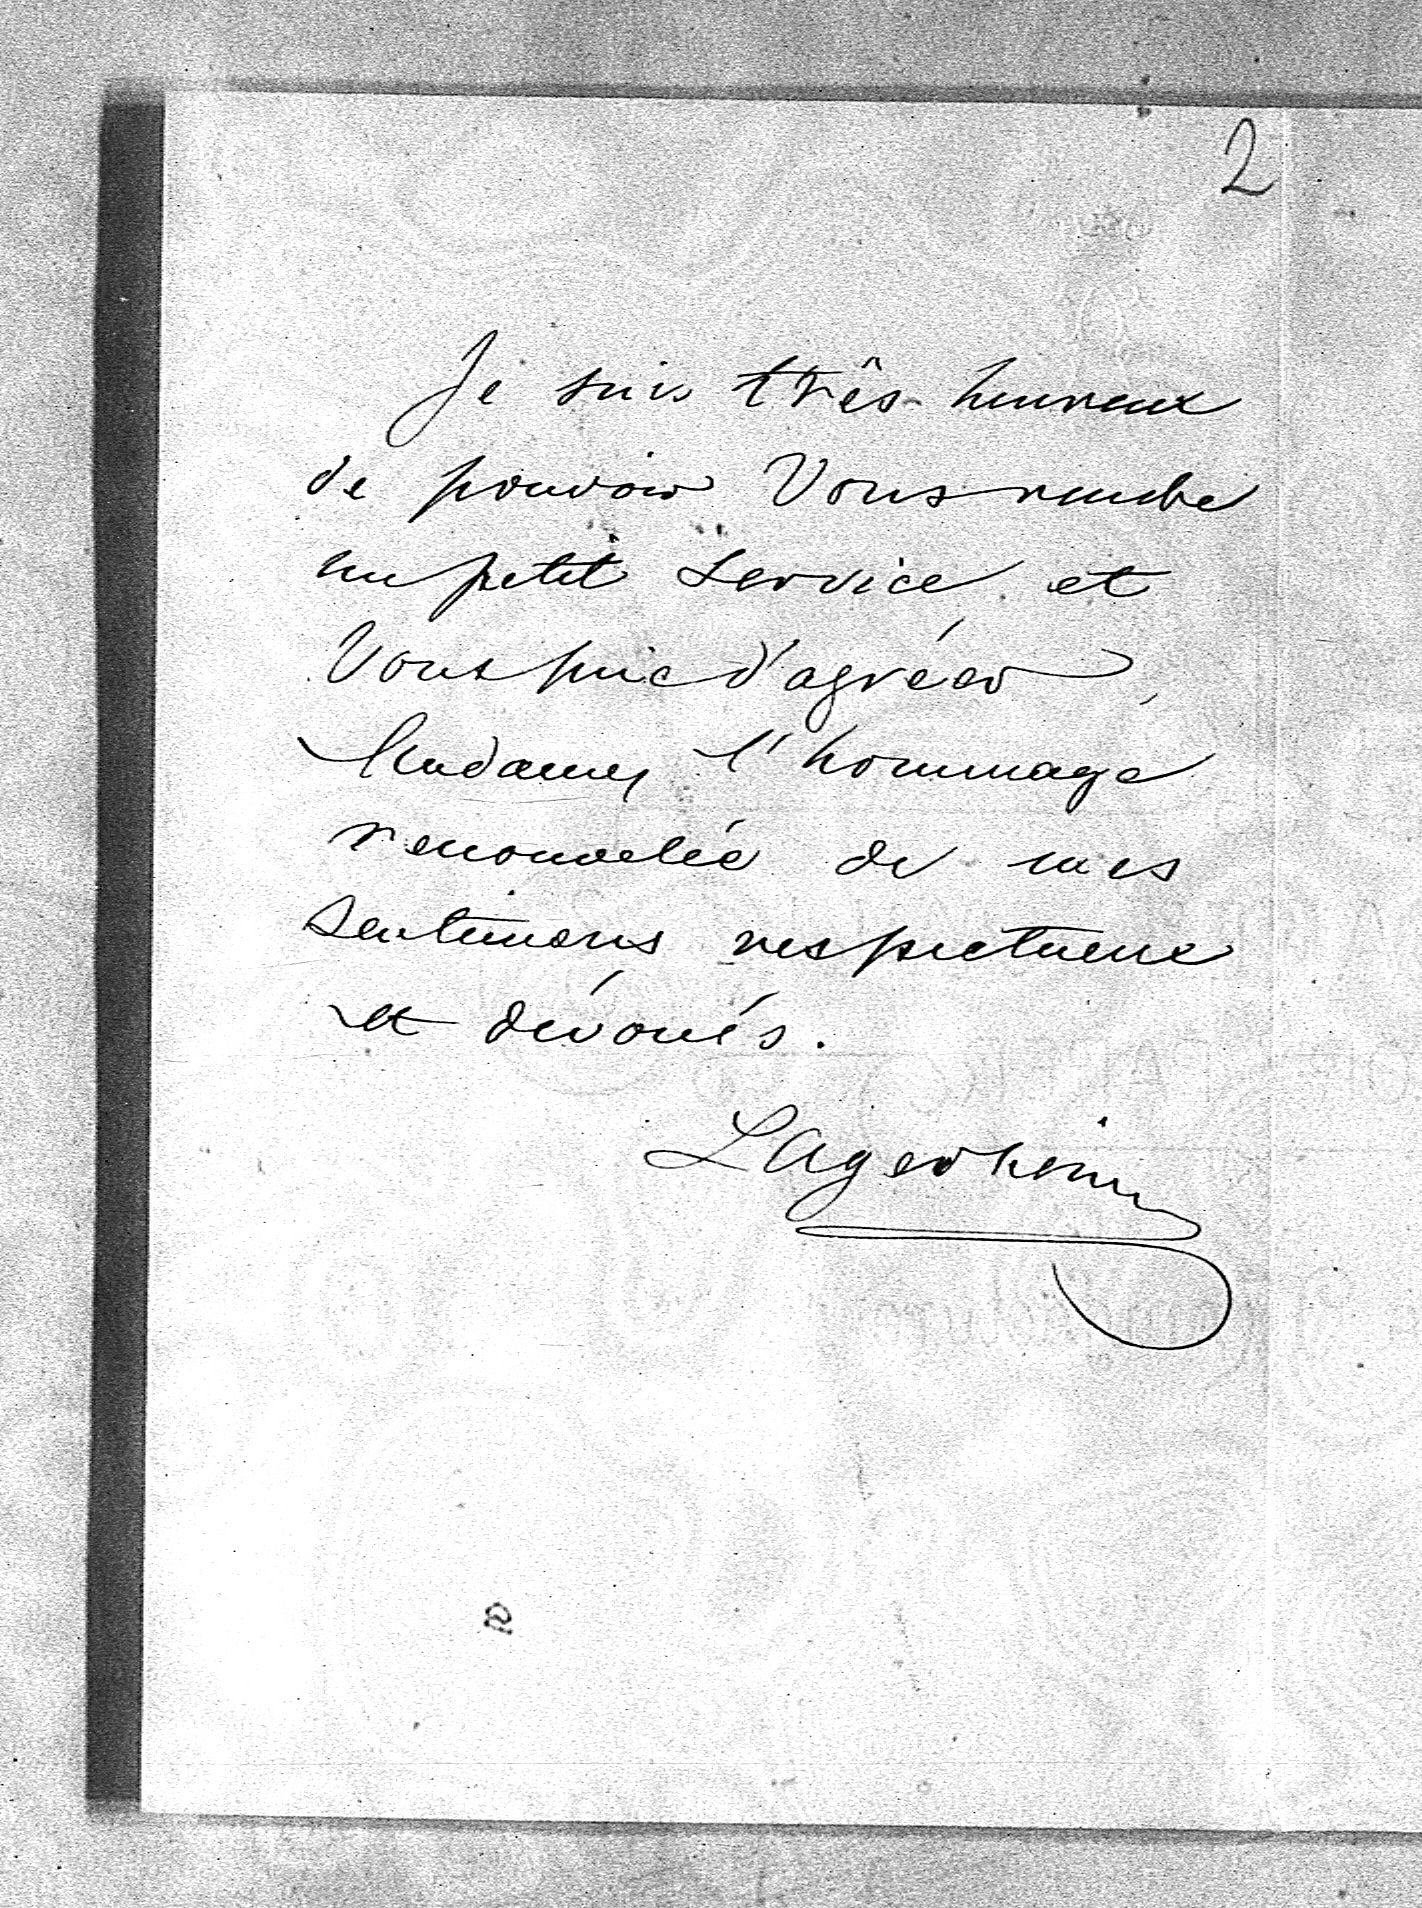 2
Je suis três heureux
de pouvoir Vous rendre
un petit service et
Vous prie d'agréer,
Madame, l'hommage
renouvelée de mes
sentimens respectueux
et dévoués.
Lagerheim